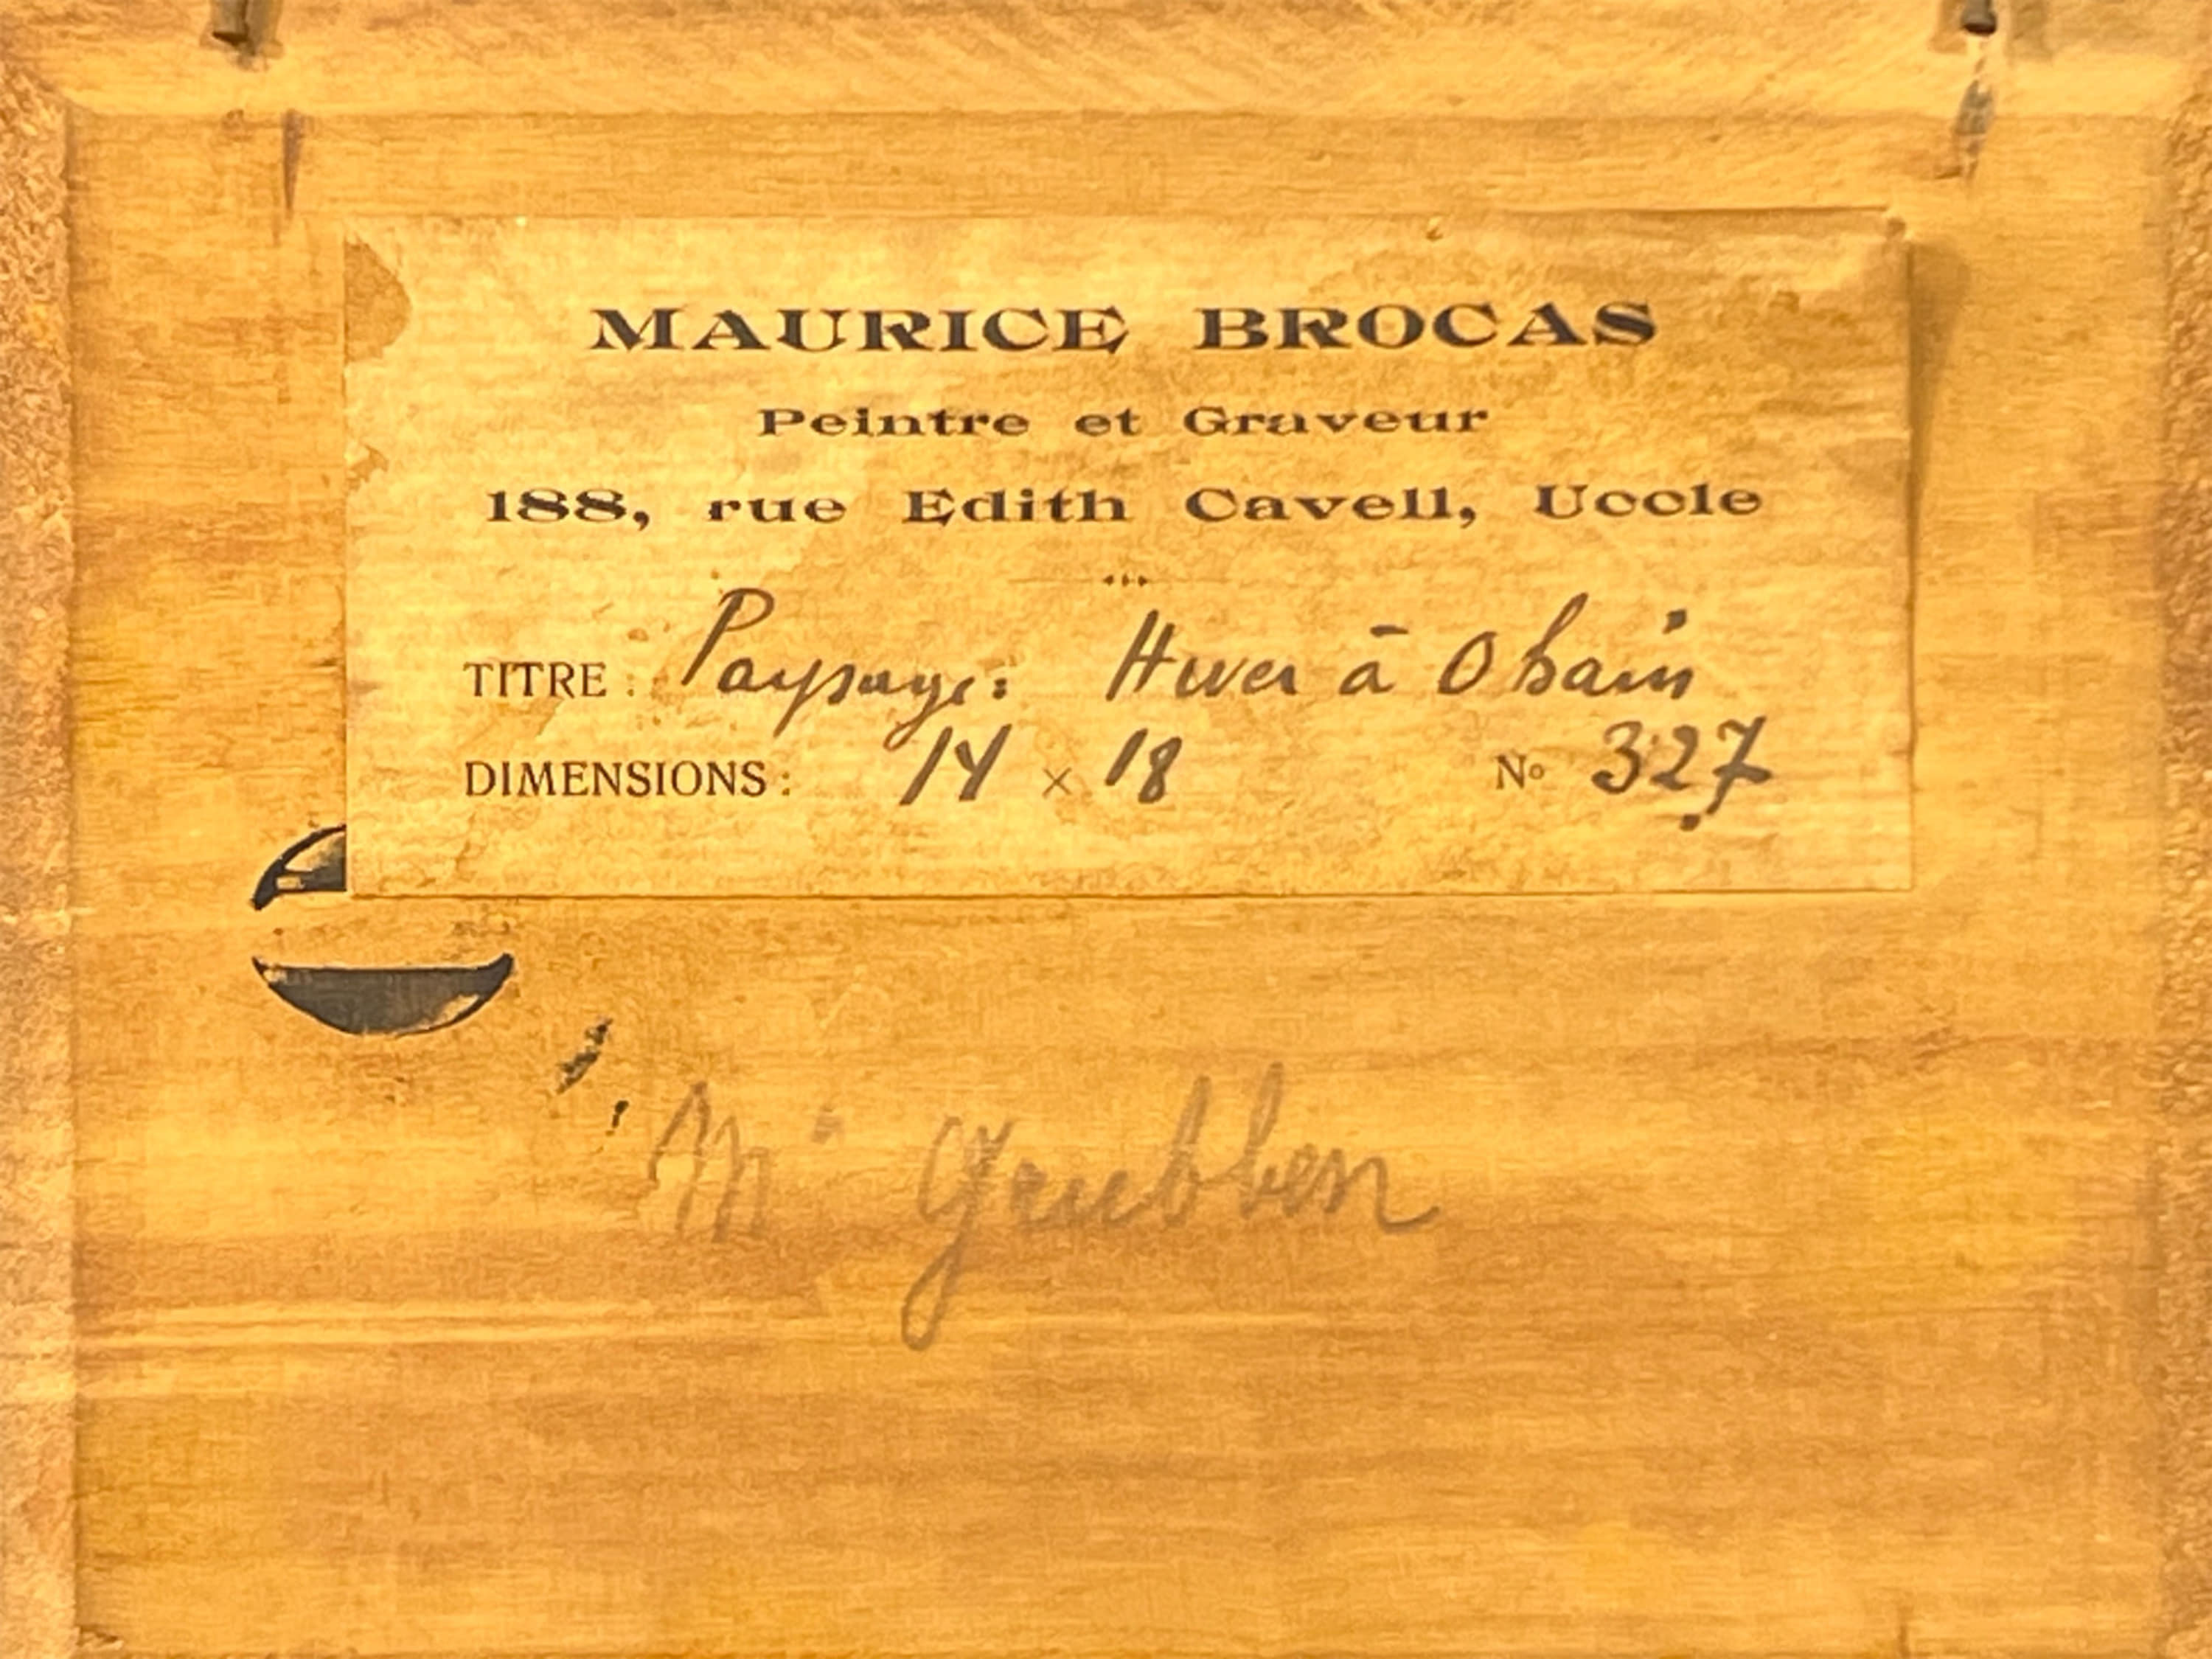 MAURICE BROCAS
Peintre et Graveur
188, rue Edith Cavell, Uccle
TITRE : Paysage: Hiver à Ohain
DIMENSIONS : 14 × 18 No 327
Mr Grubben